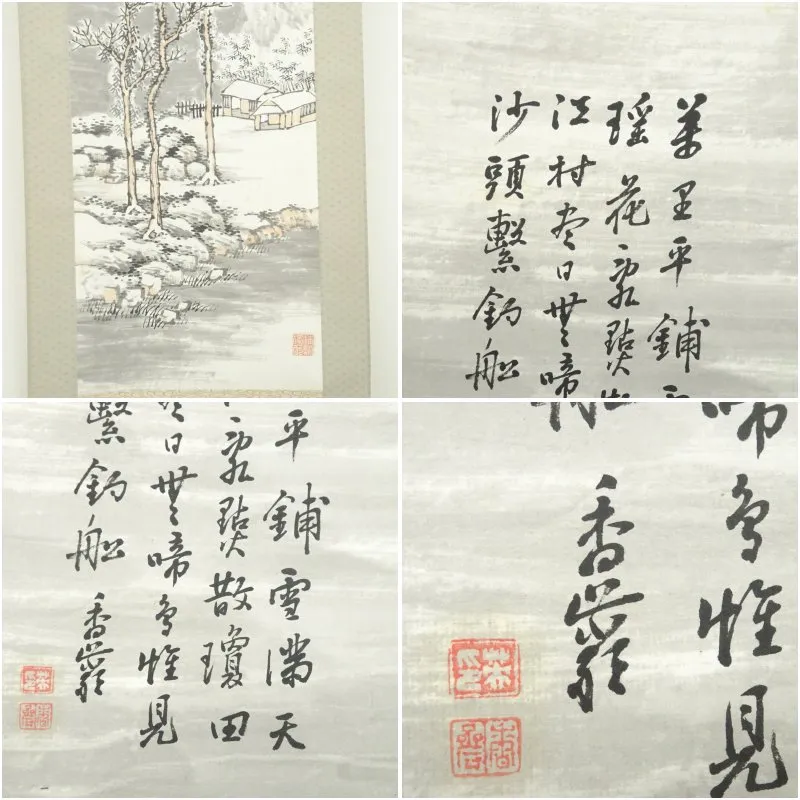 萬里平鋪
瑶花亂點
江村盡日無啼
沙頭繫釣船
平鋪雪滿天
亂點散瓊田
日無啼鳥惟見
繫釣船
香巖
啼鳥惟見
船
香巖